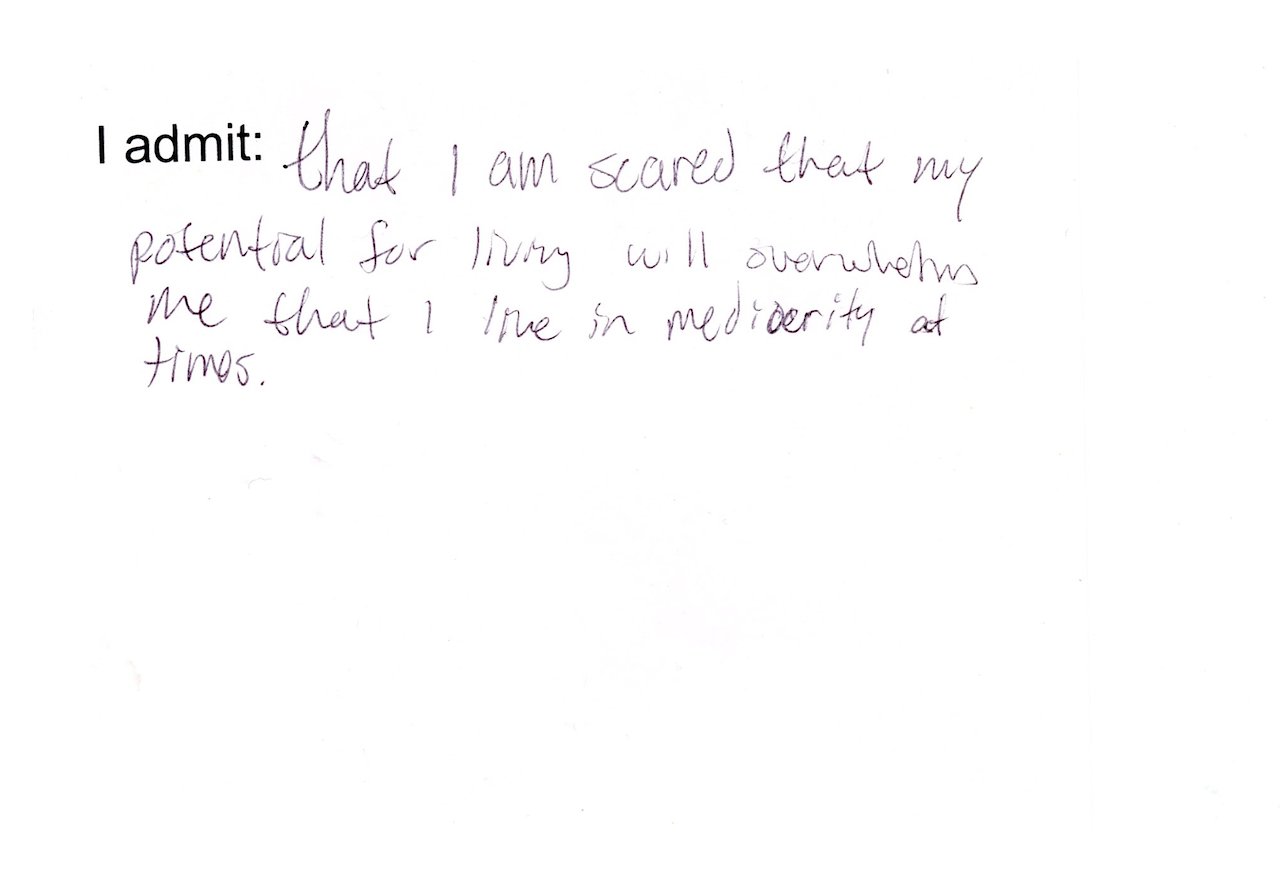 I admit: that I am scared that my
potential for living will overwhelms
me that I live in medicerity at
times.